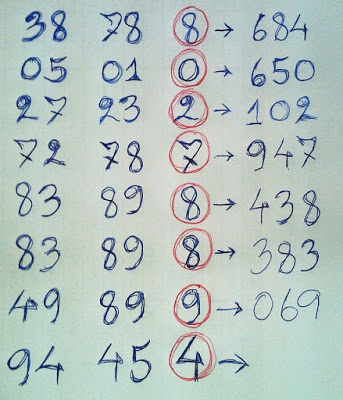 38 78 8 → 684
05 01 0 → 650
27 23 2 → 102
72 78 7 → 947
83 89 8 → 438
83 89 8 → 383
49 89 9 → 069
94 45 4 →